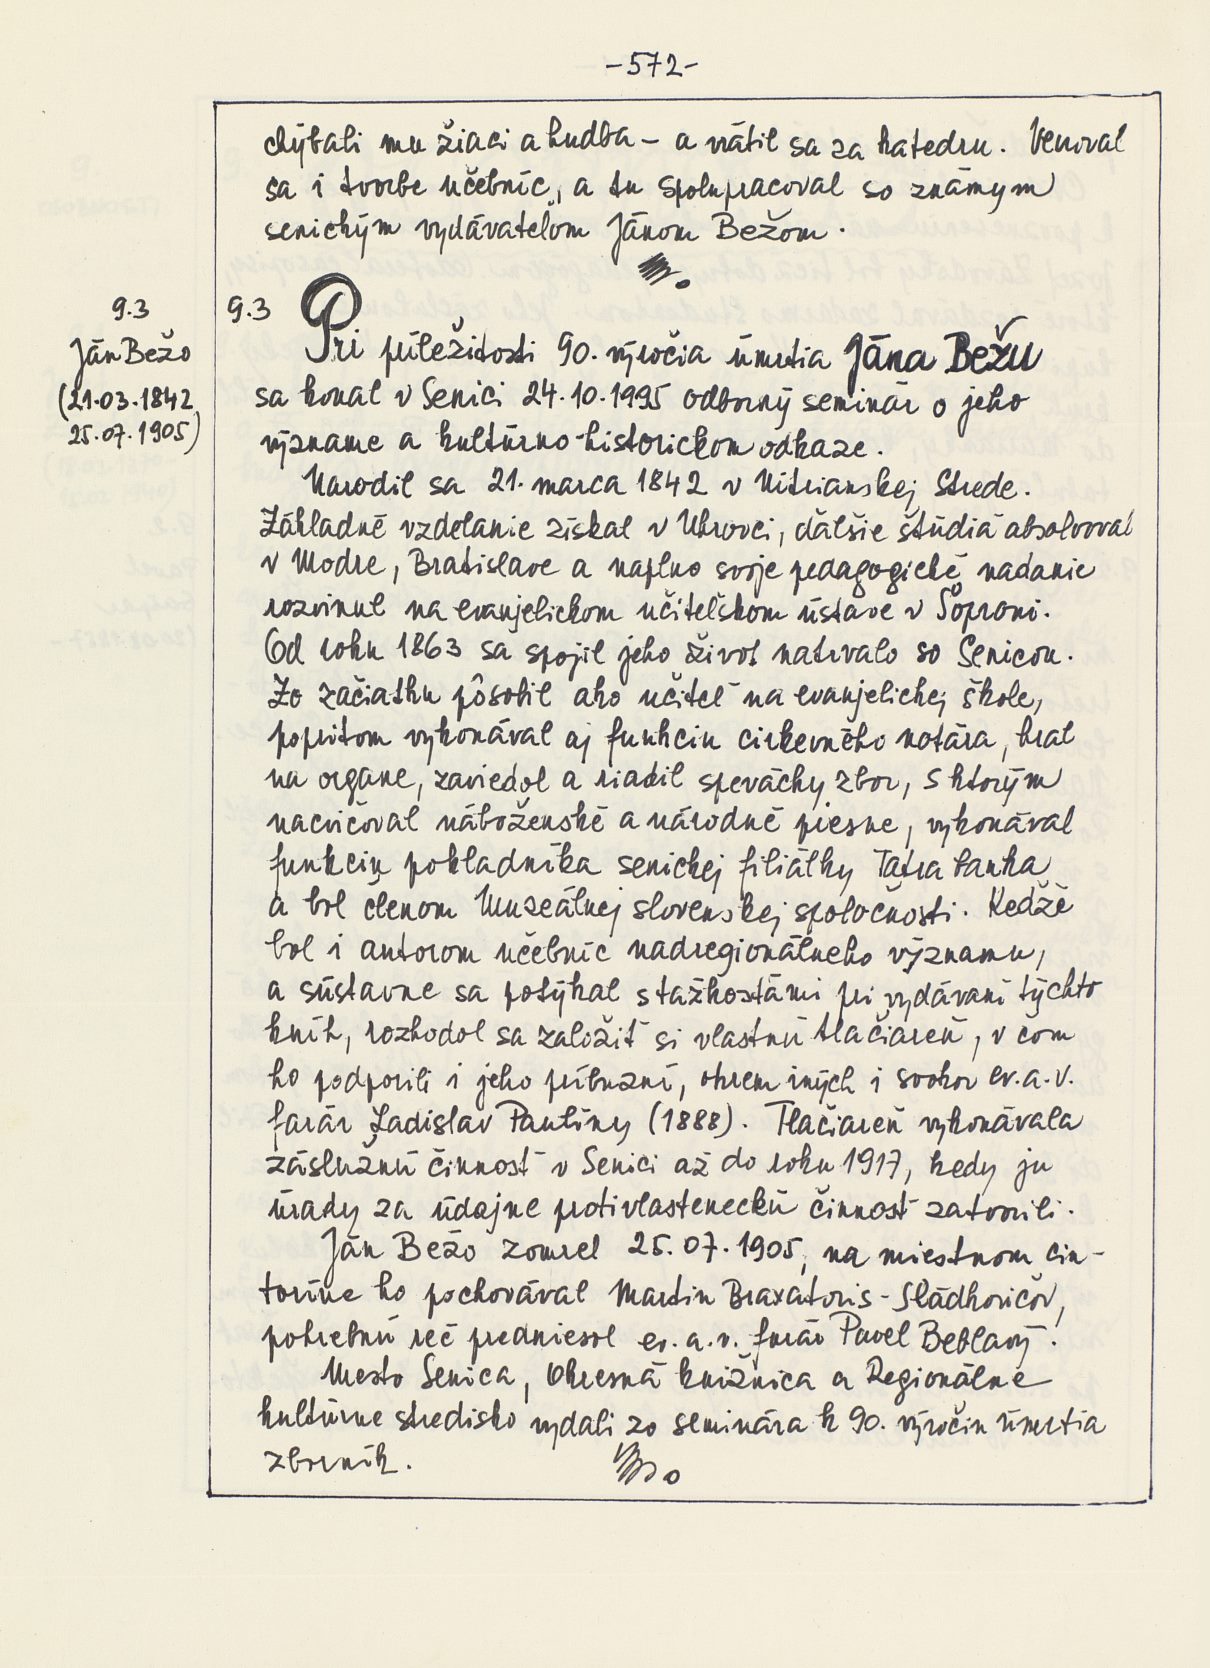 -572-
chýbali mu žiaci a hudba – a vrátil sa za katedru. Venoval
sa i tvorbe učebníc, a tu spolupracoval so známym
senickým vydávateľom Jánom Bežom.
9.3
Ján Bežo
(21.03.1842
25.07.1905)
9.3 Pri príležitosti 90. výročia úmrtia Jána Bežu
sa konal v Senici 24.10.1995 odborný seminár o jeho
význame a kultúrno-historickom odkaze.
Narodil sa 21. marca 1842 v Nitrianskej Strede.
Základné vzdelanie získal v Uhrovci, ďalšie štúdiá absolvoval
v Modre, Bratislave a naplno svoje pedagogické nadanie
rozvinul na evanjelickom učiteľskom ústave v Šoproni.
Od roku 1863 sa spojil jeho život natrvalo so Senicou.
Zo začiatku pôsobil ako učiteľ na evanjelickej škole,
popritom vykonával aj funkciu cirkevného notára, hral
na organe, zaviedol a riadil spevácky zbor, s ktorým
nacvičoval náboženské a národné piesne, vykonával
funkciu pokladníka senickej filiálky Tatra banka
a bol členom Muzeálnej slovenskej spoločnosti. Kedže
bol i autorom učebníc nadregionálneho významu,
a sústavne sa potýkal s ťažkosťami pri vydávaní týchto
kníh, rozhodol sa založiť si vlastnú tlačiareň, v čom
ho podporili i jeho príbuzní, okrem iných i svokor ev.a.v.
farár Ladislav Paulíny (1888). Tlačiareň vykonávala
záslužnú činnosť v Senici až do roku 1917, kedy ju
úrady za údajne protivlasteneckú činnosť zatvorili.
Ján Bežo zomrel 25.07.1905, na miestnom cin-
toríne ho pochovával Martin Braxatoris-Sládkovičov,
pohrebnú reč predniesol ev.a.v. farár Pavel Beblavý.
Mesto Senica, Okresná knižnica a Regionálne
kultúrne stredisko vydali zo seminára k 90. výročiu úmrtia
zborník.